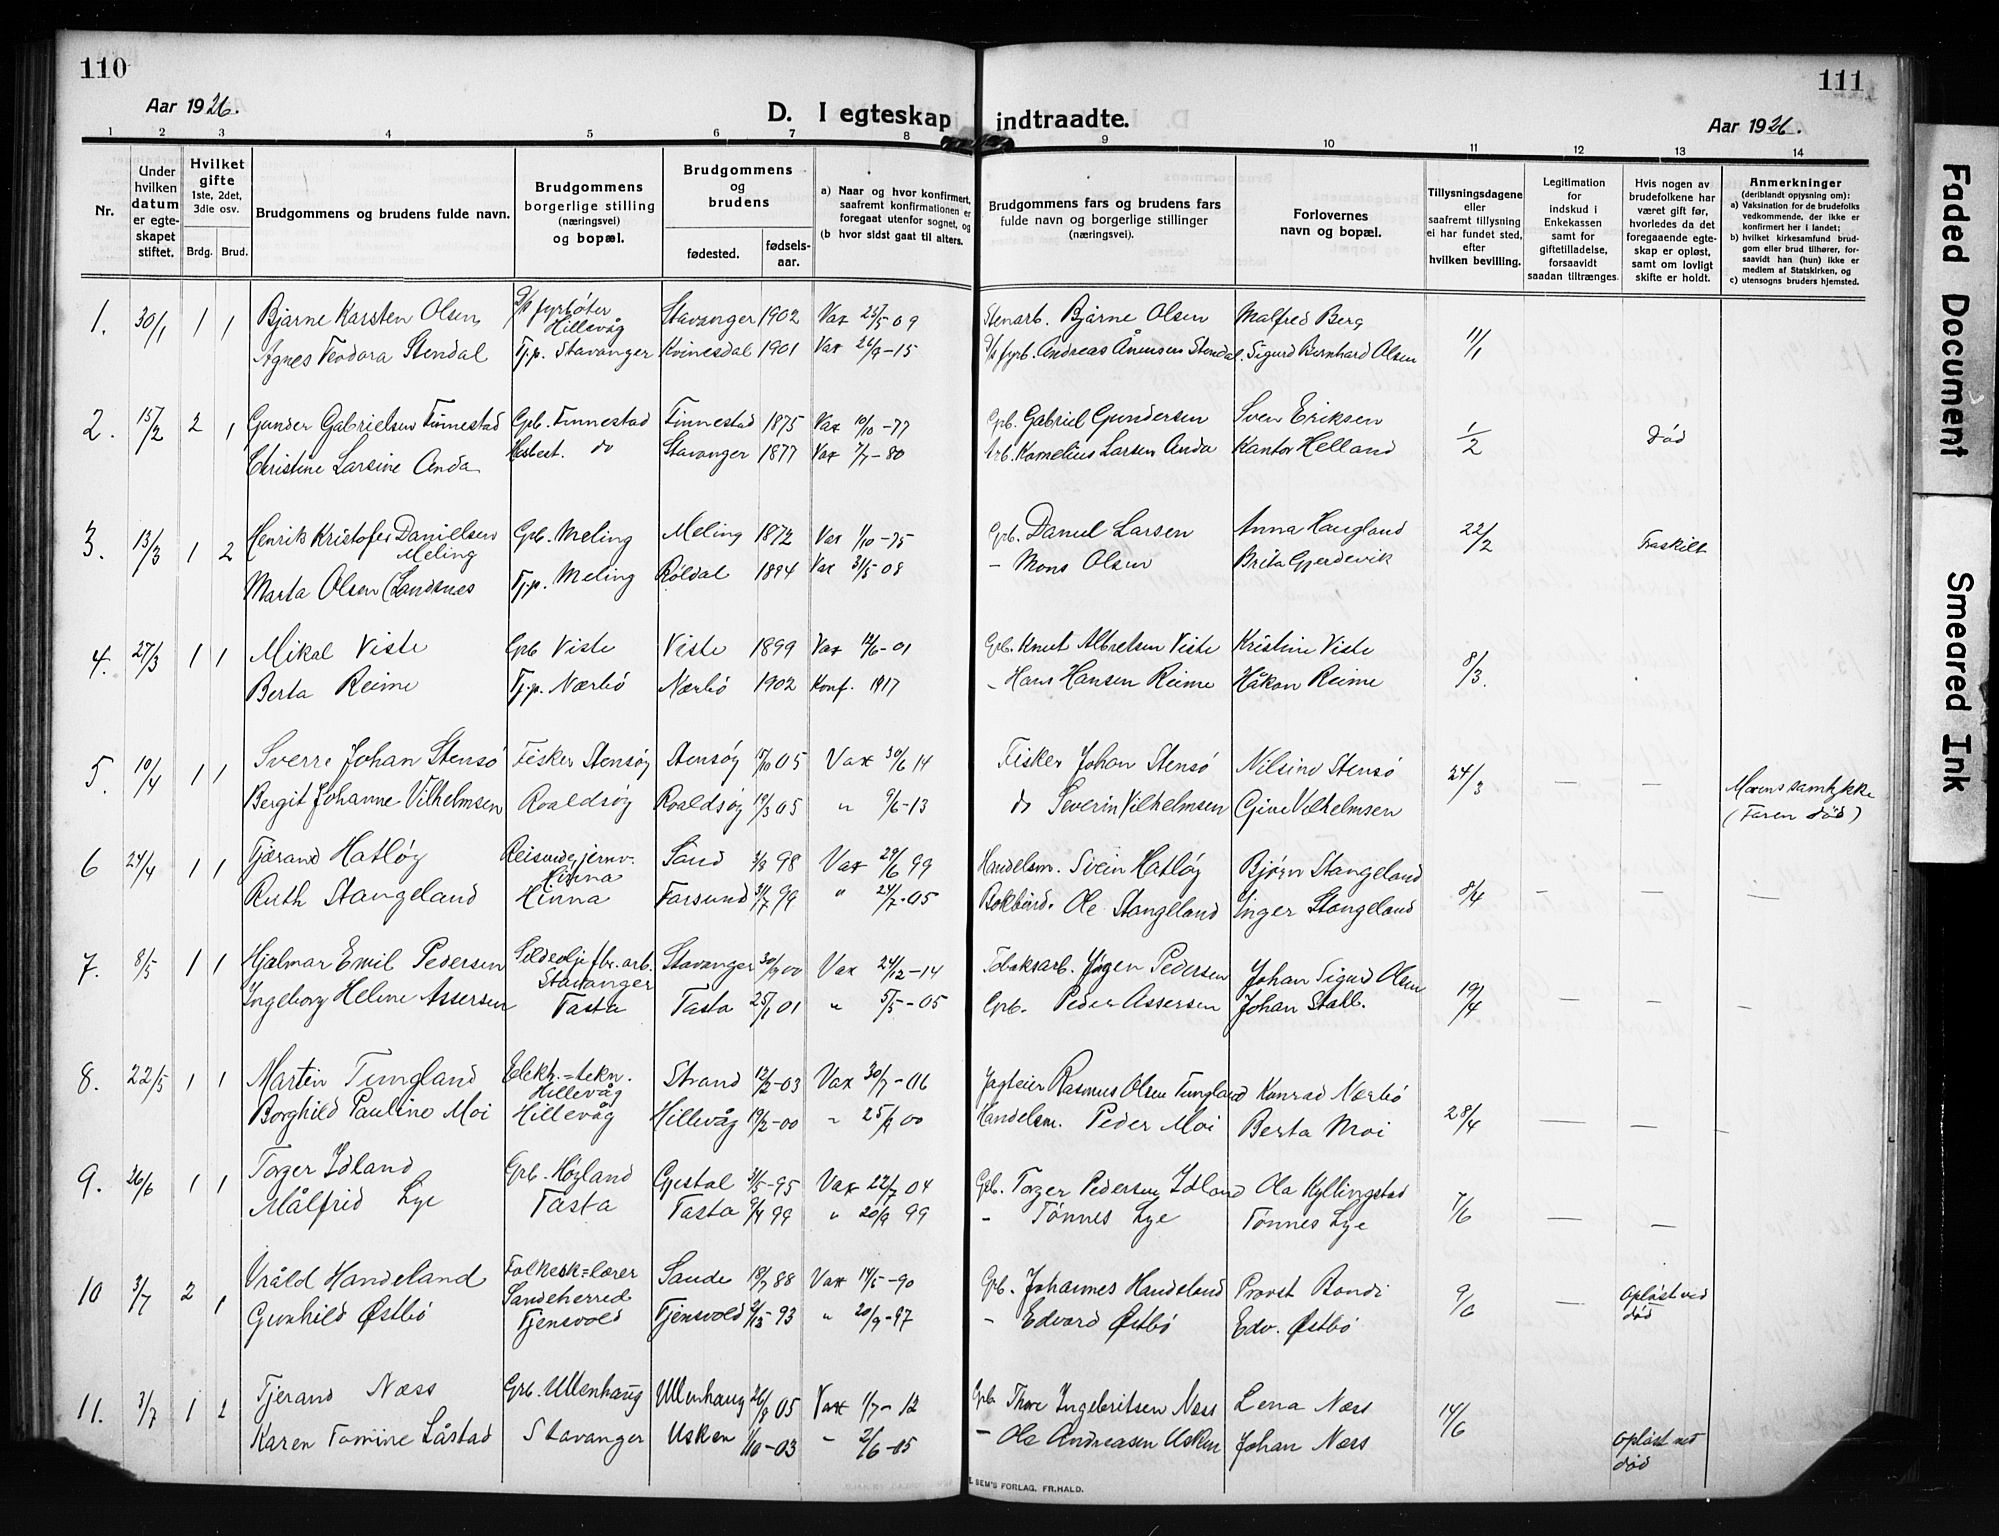 110
111
Aar 1926.
D. I egteskap indtraadte.
Aar 1926.
1 2 3 4 5 6 7 8 9 10 11 12 13 14
Nr.
Under hvilken datum er egteskapet stiftet.
Hvilket gifte 1ste, 2det, 3die osv. Brdg. Brud.
Brudgommens og brudens fulde navn.
Brudgommens borgerlige stilling (næringsvei) og bopæl.
Brudgommens og brudens fødested. fødselsaar.
a) Naar og hvor konfirmert, saafremt konfirmationen er foregaat utenfor sognet, og (b hvor sidst gaat til alters.
Brudgommens fars og brudens fars fulde navn og borgerlige stillinger (næringsvei).
Forlovernes navn og bopæl.
Tillysningsdagene eller saafremt tillysning ei har fundet sted, efter hvilken bevilling.
Legitimation for indskud i Enkekassen samt for giftetilladelse, forsaavidt saadan tiltrænges.
Hvis nogen av brudefolkene har været gift før, hvorledes da det foregaaende egteskap er opløst, samt om lovligt skifte er holdt.
Anmerkninger (deriblandt opysning om): a) Vaksination for de brudefolks vedkommende, der ikke er konfirmert her i landet; b) hvilket kirkesamfund brudgom eller brud tilhører, forsaavidt han (hun) ikke er medlem af Statskirken, og c) utensogns bruders hjemsted.
1. 30/1 1 1 Bjarne Karsten Olsen fyrbøter Hillevåg Stavanger 1902 Vax 23/5 09 Stenarb. Bjarne Olsen Malfred Berg 11/1
Agnes Teodora Stendal Tj.p. Stavanger Kvinesdal 1901 Vax 26/9-15 fyrb. Andreas Stendal. Sigurd Bernhard Olsen
2. 15/2 2 1 Gunder Gabrielsen Finnestad Grb. Finnestad Finnestad 1875 Vax 10/10-77 Grb. Gabriel Gundersen Sven Eriksen 1/2 Død
Christine Larsine Anda Hesbest. do Stavanger 1877 Vax 7/7-80 Arb. Kornelius Larsen Anda Kantor Helland
3. 13/3 1 2 Henrik Kristofer Danielsen Meling Grb. Meling Meling 1872 Vax 1/10-75 Grb. Daniel Larsen Anna Haugland 22/2 Fraskilt
Marta Olsen (Landsnes Tj.p. Meling Røldal 1894 Vax 31/5 08 - Mons Olsen Brita Gjerdevik
4. 27/3 1 1 Mikal Viste Grb Viste Viste 1899 Vax 12/6-01 Grb. Knut Albretsen Viste Kristine Viste 8/3.
Berta Reime Tj.p. Nærbø Nærbø 1902 Konf. 1917 - Hans Hansen Reime Håkon Reime
5. 10/4 1 1 Sverre Johan Stensø Fisker Stensøy Stensøy 15/10 05 Vax 30/6 14 Fisker Johan Stensø Nilsine Stensø 24/3 — — Morens samtykke
Bergit Johanne Vilhelmsen Roaldsøy Roaldsøy 19/3 05 " 9/6-13 do Severin Vilhelmsen Gine Vilhelmsen (Faren død)
6 24/4 1 1 Tjærand Hatløy Reisende jernv. Hinna Sand 3/3 98 Vax 29/6 99 Handelsm. Svein Hatløy Bjørn Stangeland 8/4 - — —
Ruth Stangeland Hinna Farsund 31/7 99 " 24/7-05 Bokbind. Ole Stangeland Inger Stangeland
7. 8/5 1 1 Hjalmar Emil Pedersen Sildeoljefbr. arb. Stavanger Stavanger 30/9 00 Vax 24/12-14 Tobaksarb. Jørgen Pedersen Johan Sigurd Olsen 19/4 — — —
Ingeborg Helene Assersen Tasta Tasta 25/1 01 " 5/5-05 Grb. Peder Assersen Johan Stabb.
8. 22/5 1 1 Martin Tungland Elektr.=tekn. Hillevåg Strand 12/2-03 Vax 30/7-06 Jagteier Rasmus Olsen Tungland Konrad Nærbø 28/4 — — —
Borghild Pauline Moi Hillevåg Hillevåg 19/2-00 " 25/9 00 Handelsm. Peder Moi Berta Moi
9. 26/6 1 1 Torger Idland Grb. Høyland Gjestal 31/5-95 Vax 22/7 04 Grb. Torger Pedersen Idland Ola Kyllingstad 7/6 — —
Målfrid Lye Tasta Tasta 6/4 99 " 20/9 99 - Tønnes Lye Tønnes Lye
10 3/7 2 1 Vråld Handeland Folkesk=lærer Sandeherred Sande 18/7 88 Vax 14/5-90 Grb. Johannes Handeland Provst Bondi 9/6 — Opløst ved død
Gunhild Østbø Tjensvold Tjensvold 2/12-93 " 20/9-97 - Edvard Østbø Edv. Østbø
11. 3/7 1 2 Tjerand Næss Grb. Ullenhaug Ullenhaug 26/8 05 Vax 1/7-12 Grb Thore Ingebritsen Næss Lena Næss 14/6 Opløst ved død
Karen Tomine Låstad Stavanger Usken 1/10-03 " 2/6-05 - Ole Andreasen Usken Johan Næss
SEM'S FORLAG, FR.HALD.
Faded Document
Smeared Ink